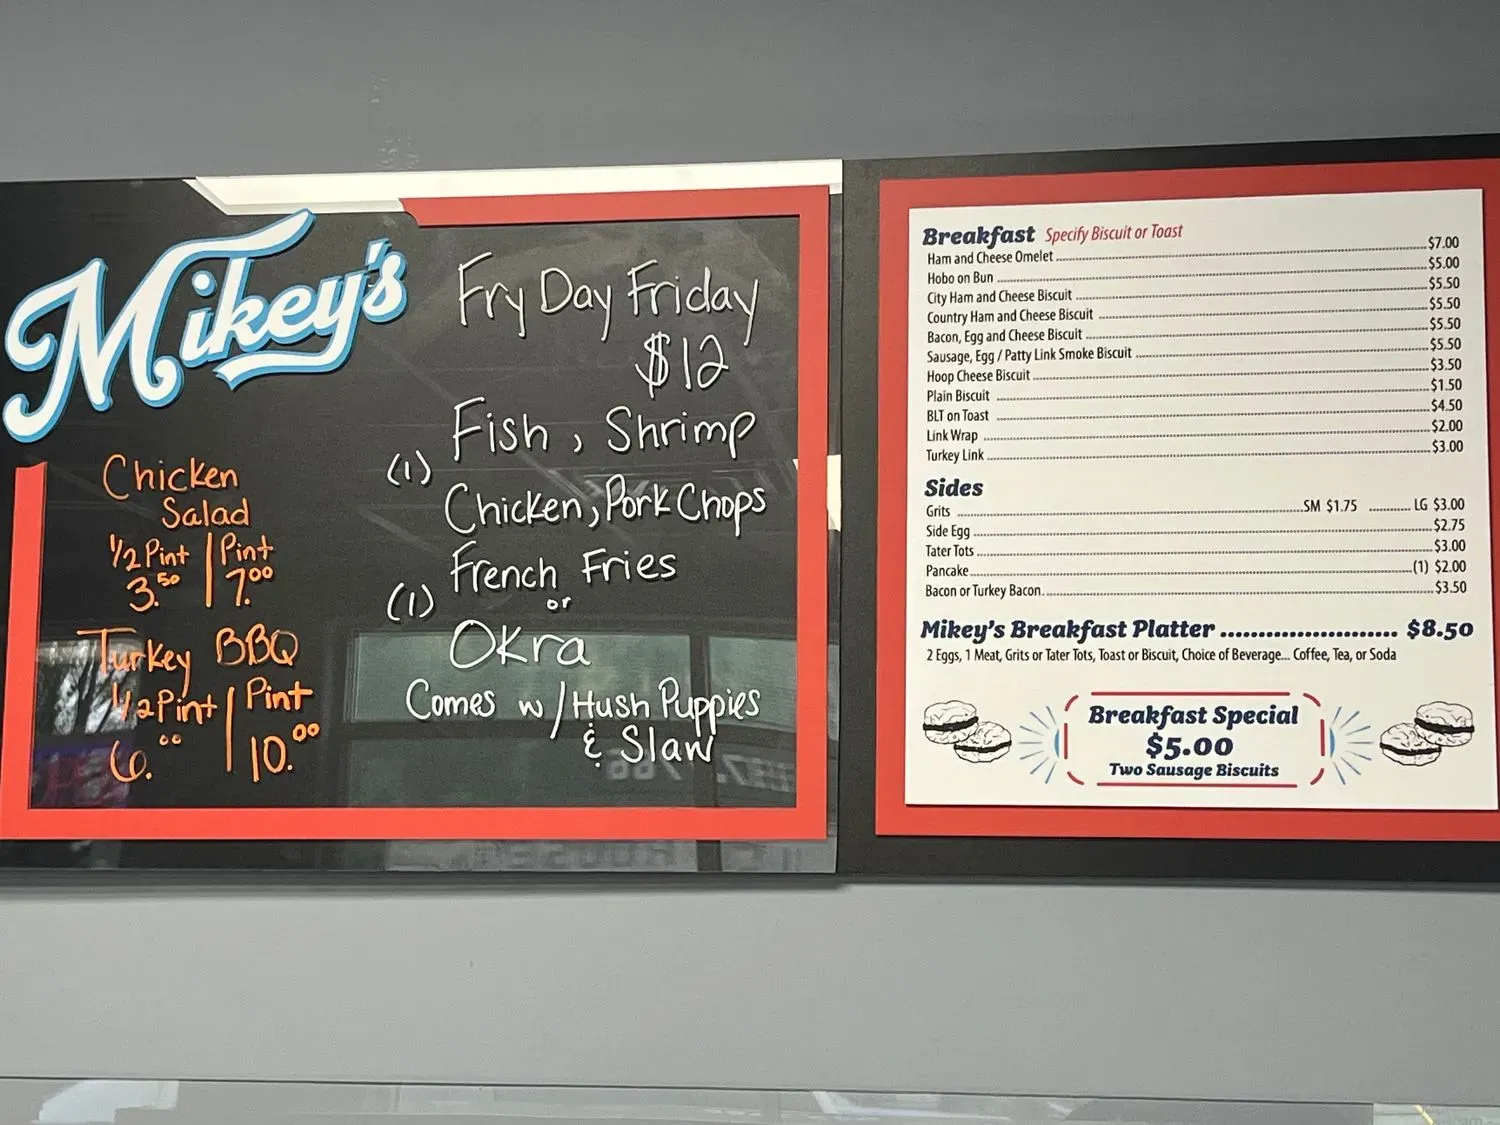 Mikey's
Fry Day Friday
$12
Fish, Shrimp
(1)
Chicken, Pork Chops
French Fries
(1)
or
Okra
Comes w/ Hush Puppies
& Slaw
Chicken
Salad
1/2 Pint | Pint
3.50 | 7.00
Turkey BBQ
1/2 Pint | Pint
6.00 | 10.00
Breakfast Specify Biscuit or Toast
Ham and Cheese Omelet $7.00
Hobo on Bun $5.00
City Ham and Cheese Biscuit $5.50
Country Ham and Cheese Biscuit $5.50
Bacon, Egg and Cheese Biscuit $5.50
Sausage, Egg / Patty Link Smoke Biscuit $5.50
Hoop Cheese Biscuit $3.50
Plain Biscuit $1.50
BLT on Toast $4.50
Link Wrap $2.00
Turkey Link $3.00
Sides
Grits SM $1.75 LG $3.00
Side Egg $2.75
Tater Tots $3.00
Pancake (1) $2.00
Bacon or Turkey Bacon $3.50
Mikey's Breakfast Platter $8.50
2 Eggs, 1 Meat, Grits or Tater Tots, Toast or Biscuit, Choice of Beverage... Coffee, Tea, or Soda
Breakfast Special
$5.00
Two Sausage Biscuits